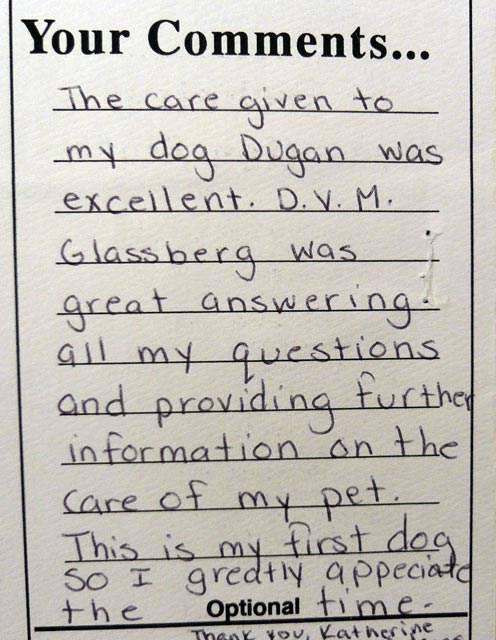 Your Comments...
The care given to
my dog Dugan was
excellent. D.V.M.
Glassberg was
great answering
all my questions
and providing further
information on the
care of my pet.
This is my first dog
so I greatly appeciate
the Optional time.
Thank you, Katherine